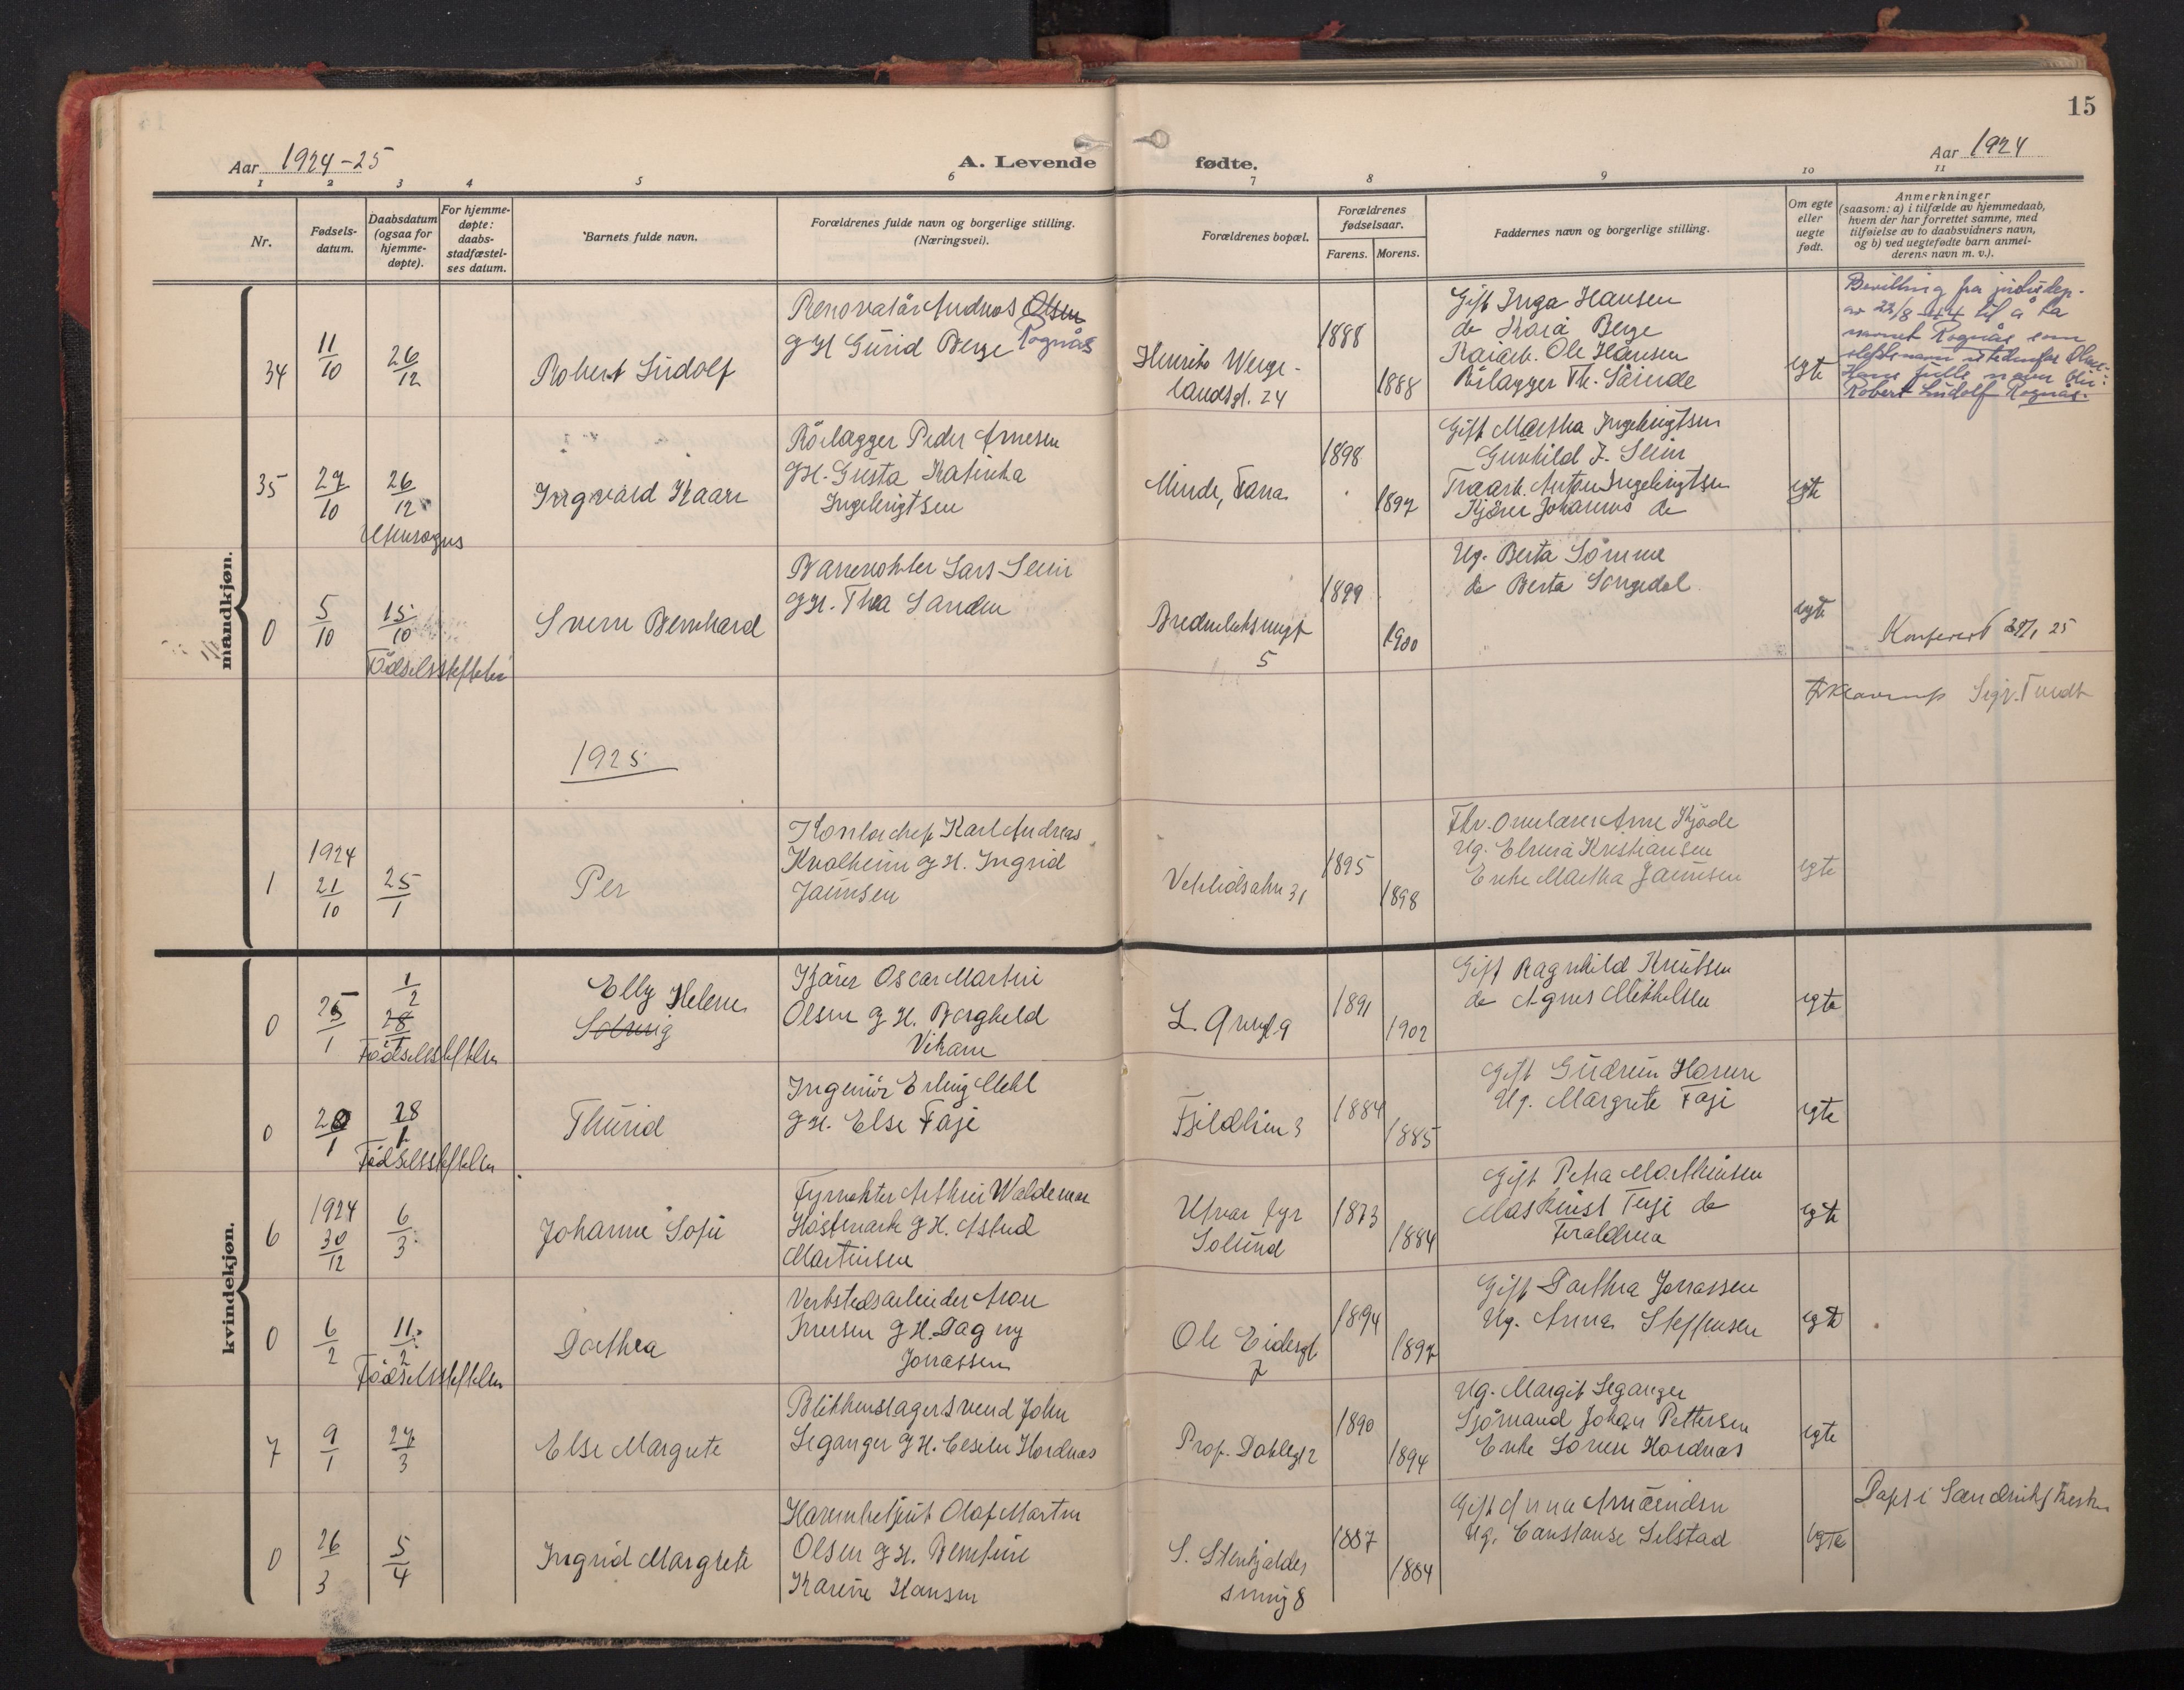 15
Aar 1924-25
A. Levende
fødte.
Aar 1924
1 2 3 4 5 6 7 8 9 10 11
Nr.
Fødsels-
datum.
Daabsdatum
(ogsaa for
hjemme-
døpte).
For hjemme-
døpte:
daabs-
stadfæstel-
ses datum.
Barnets fulde navn.
Forældrenes fulde navn og borgerlige stilling.
(Næringsvei).
Forældrenes bopæl.
Forældrenes
fødselsaar.
Farens. Morens.
Faddernes navn og borgerlige stilling.
Om egte
eller
uegte
født.
Anmerkninger
(saasom: a) i tilfælde av hjemmedaab,
hvem der har forrettet samme, med
tilføielse av to daabsvidners navn,
og b) ved uegtefødte barn anmel-
derens navn m. v.).
mandkjøn.
34
11/10
26/12
Robert Ludolf
Renovatør Andreas Olsen
Rognås
g H Gurid Berge
Henrik Werge-
landsgt. 24
1888
1888
Gift Inga Hansen
do Kara Berge
Kaiarb. Ole Hansen
Rørlægger Th.
egte
Bevilling fra justisdep.
av 22/8-44 til å ta
navnet Rognås som
slektsnavn istedenfor Olsen.
Hans fulle navn blir:
Robert Ludolf Rognås.
35
27/10
26/12
Utensogns
Ingvald Kaare
Rørlægger Peder Arnesen
g H. Gusta Katinka
Ingebrigtsen
Minde, Fana
1898
1897
Gift Martha Ingebrigtsen
Gunhild J. Seim
Traarb. Anton Ingebrigtsen
Kjører Johannes do
egte
0
5/10
15/10
Fødselsstiftelsen
Sverre Bernhard
Banevokter Lars Seim
g H. Thea Sanden
5
1899
1900
Ug. Berta Sømme
do Berta Songedal
egte
Konferert 29/1 25
Sigr. Tvedt
1925
1
1924
21/10
25/1
Per
Kontorchef Karl Andreas
Kvalheim g H. Ingrid
Jaunsen
31
1895
1898
Fhv. Overlærer Arne Kjøde
Ug. Elvira Kristiansen
Enke Martha Jaunsen
egte
kvindekjøn.
0
25/1
1/2
28/1
Fødselsstiftelsen
Elly Helene
Solveig
Kjører Oscar Martin
Olsen g H. Borghild
Vikane
1891
1902
Gift Ragnhild Knutsen
do Agnes Mikkelsen
egte
0
20/1
28/1
Fødselsstiftelsen
Thurid
Ingeniør Erling Mehl
g H. Else Faje
Fjeldlien 3
1884
1885
Gift Gudrun Horne
Ug. Margrete Faje
egte
6
1924
30/12
6/3
Johanne Sofie
Fyrvokter Arthur Waldemar
Hostmark g H. Astrid
Martinsen
Utvær fyr
Solund
1873
1884
Gift Petra Marthinsen
Maskinist Terje do
Forældrene
egte
0
6/2
11/2
Fødselsstiftelsen
Dorthea
Verkstedsarbeider Aron
Iversen g H. Dagny
Jonassen
Ole Eidesgt
7
1894
1897
Gift Dorthea Jonassen
Ug. Anna Steffensen
egte
7
9/1
27/3
Else Margrete
Blikkenslagersvend John
Leganger g H. Eselin Hordnes
Prof. Dahlsgt 2
1890
1894
Ug. Margit Leganger
Sjømand Johan Pettersen
Enke Søren Hordnæs
egte
0
26/3
5/4
Ingrid Margrete
Havnebetjent Olaf Martin
Olsen g H. Bentine
Karine Hansen
S. Stenkjelder
smug 8
1887
1884
Gift Anna Amundsen
Ug. Constanse Selstad
egte
Døpt i Sandviks kirken